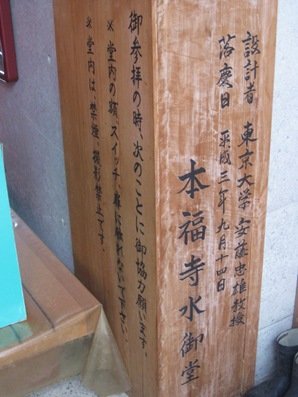 設計者 東京大学 安藤忠雄教授
落慶日 平成三年九月十四日
本福寺水御堂
御参拝の時、次のことに御協力願います。
※堂内の額、スイッチ、扉に触れないで下さい。
※堂内は、禁煙、撮影禁止です。